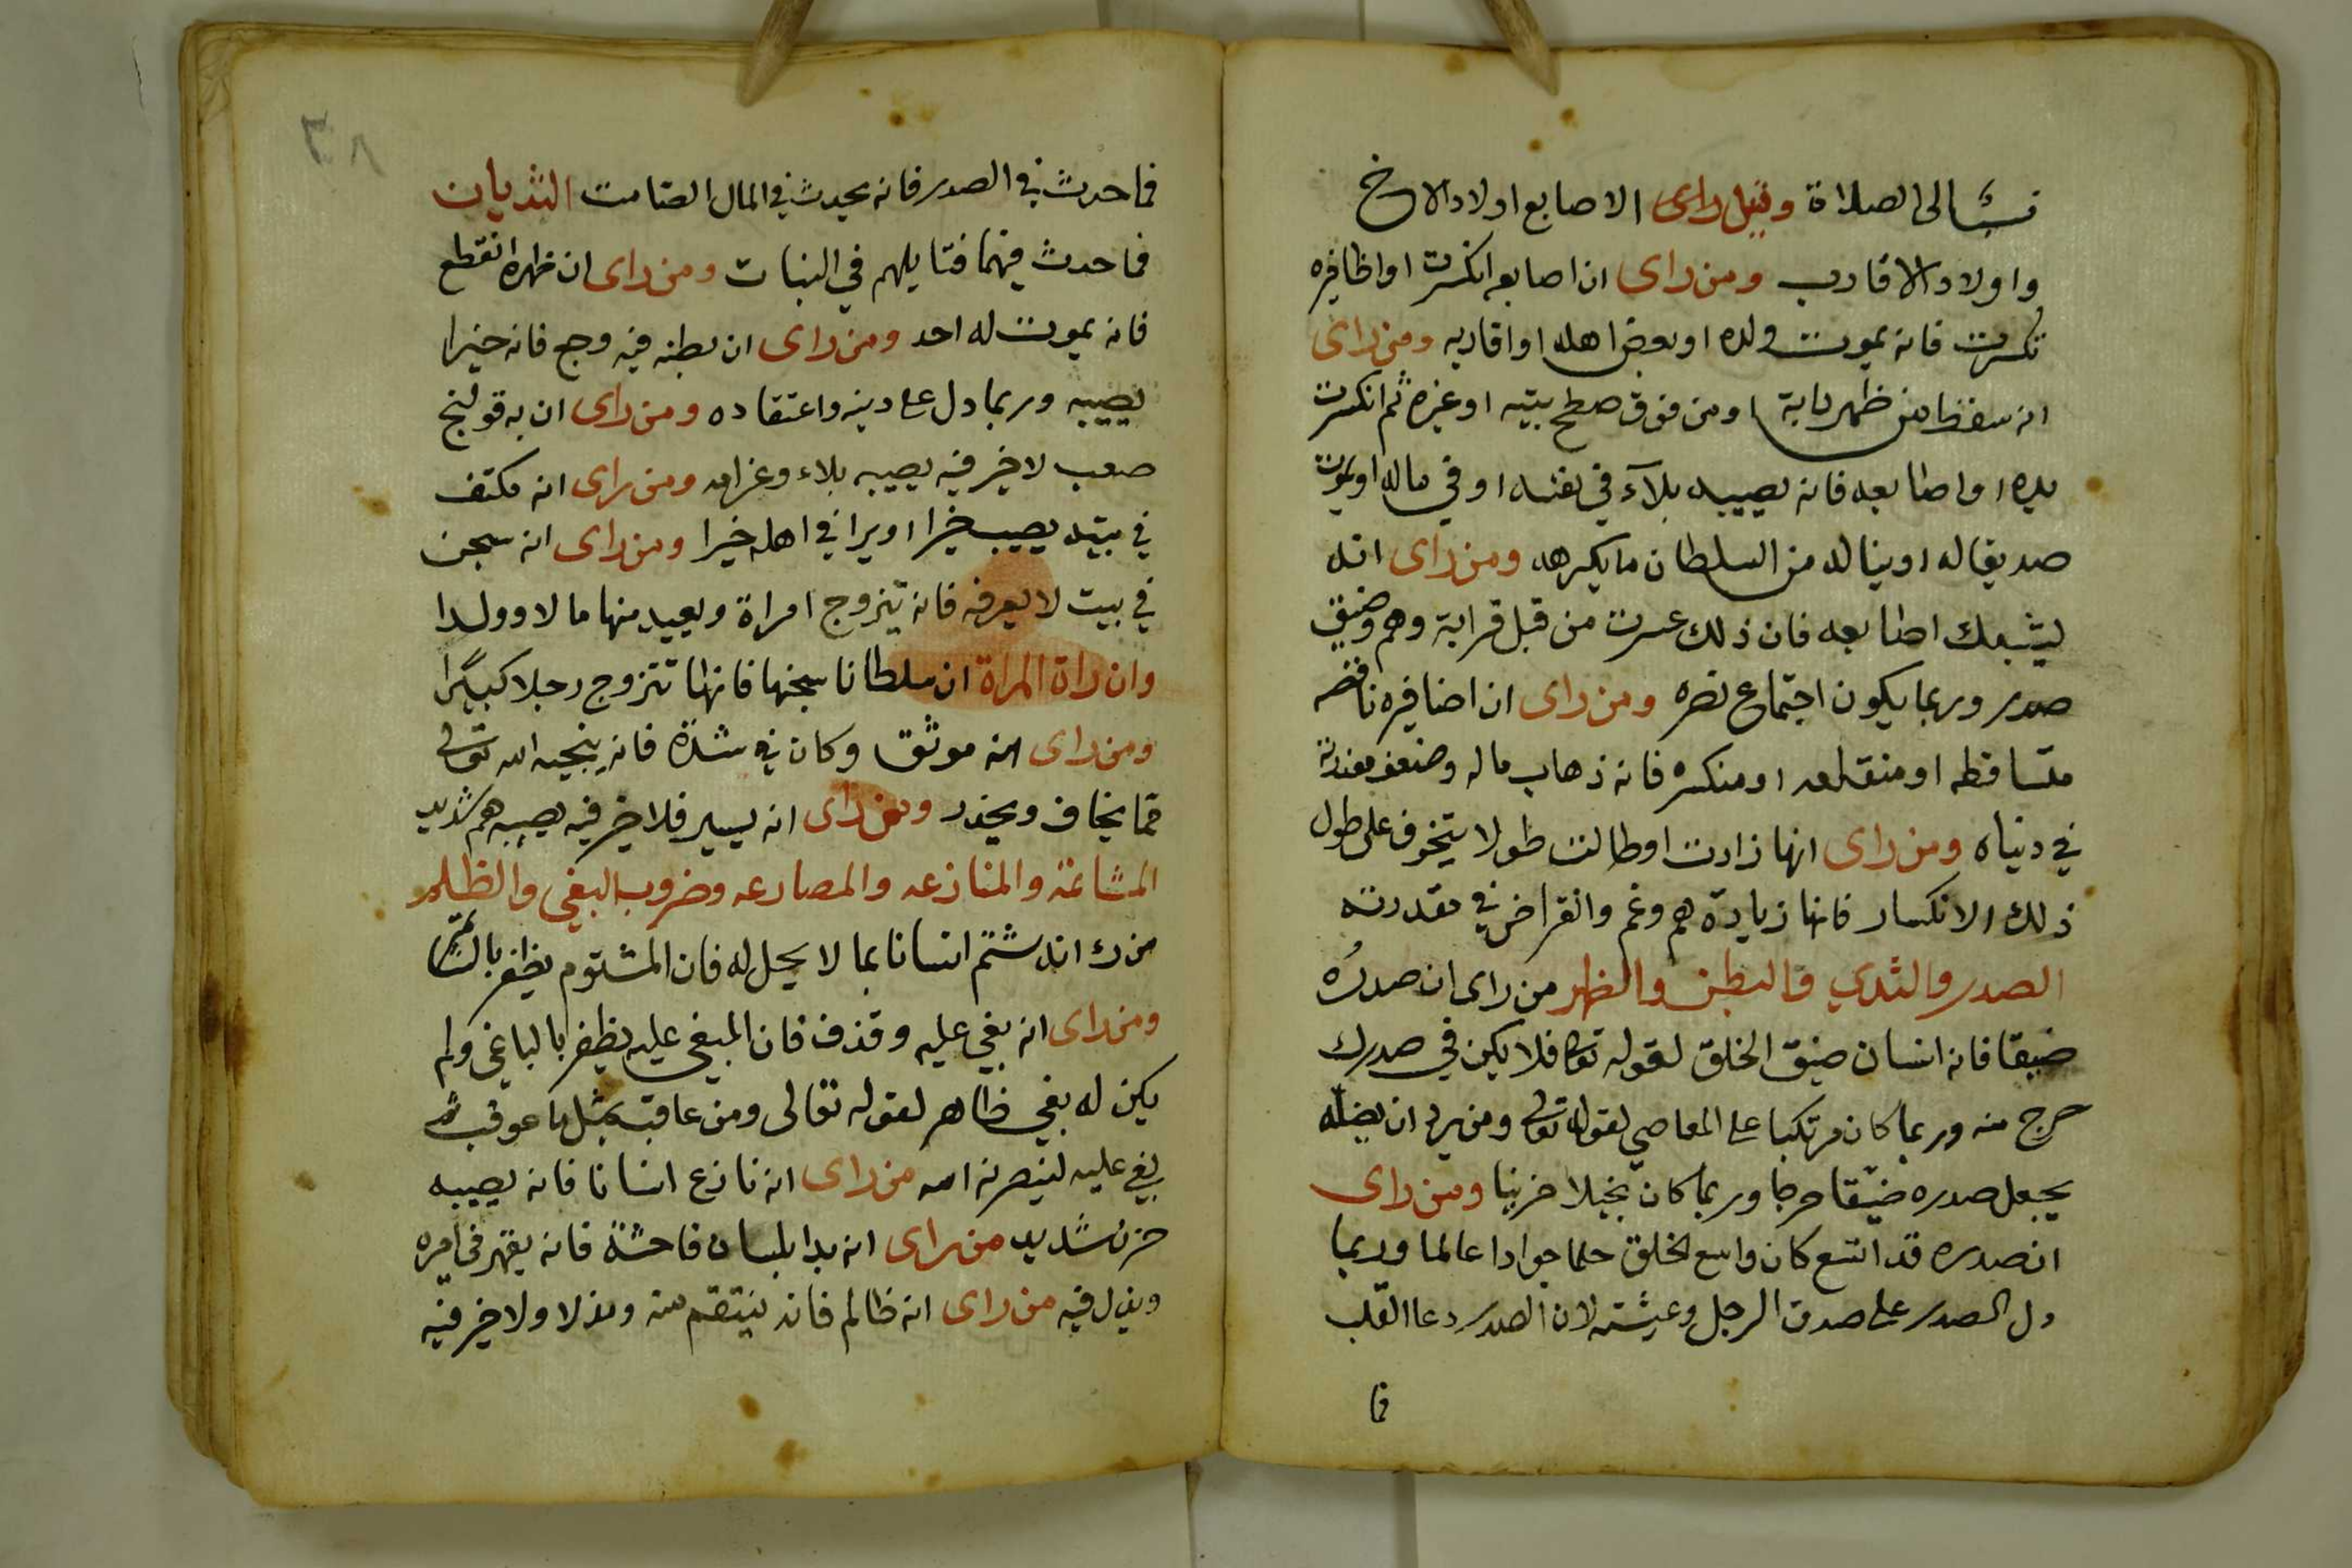 الى الصلاة وقيل راى الاصابع اولاد الاخ
واولاد الاقارب ومن راى ان اصابعه انكسرت او اظافيره
تكسرت فانه يموت ولده او بعض اهله او اقاربه ومن راى
انه سقط من ظهر دابة او من فوق صطح بيته او غيره ثم انكسرت
يده او اصابعه فانه يصيبه بلآء في نفسه او في ماله او يموت
صديقا له او يناله من السلطان ما يكرهه ومن راى انه
يشبك اصابعه فان ذلك عسرت من قبل قرابة وهم وضيق
صدر وربما يكون اجتماع نصره ومن راى ان اضافيره ناقصه
متساقطه او منقلعه او منكسره فانه ذهاب ماله وضعف مقدرته
في دنياه ومن راى انها زادت او طالت طولا يتخوف على طول
ذلك الانكسار فانها زيادة هم وغم وانقراض في مقدرته
الصدر والثدي والبطن والظهر من راى ان صدره
ضيقا فانه انسان ضيق الخلق لقوله تعالى فلا يكن في صدرك
حرج منه وربما كان مرتكبا على المعاصي لقوله تعالى ومن يرد ان يضله
يجعل صدره ضيقا حرجا وربما كان بخيلا حزينا ومن راى
ان صدره قد اتسع كان واسع الخلق حلما جوادا عالما وربما
دل الصدر على صدق الرجل وعيشته لان الصدر دعا القلب
فما
٣٨
فما حدث في الصدر فانه يحدث في المال الصامت الثديان
فما حدث فيهما فتايلهم في البنات ومن راى ان ظهره انقطع
فانه يموت له احد ومن راى ان بطنه فيه وجع فانه خيرا
يصيبه وربما دل على دينه واعتقاده ومن راى ان به قولنج
صعب لا خير فيه يصيبه بلاء وغرامه ومن راى انه مكتف
في بيته يصيب خيرا او يرا في اهله خيرا ومن راى انه سجن
في بيت لا يعرفه فانه يتزوج امراة ويعيد منها مالا وولدا
وان راة المراة ان سلطانا سجنها فانها تتزوج رجلا كبيرا
ومن راى انه موثق وكان في شدة فانه ينجيه الله تعالى
مما يخاف ويحذر ومن راى انه يسير فلا خير فيه يصيبه هم شديد
المشاتمة والمنازعه والمصارعه وضروب البغي والظلم
من راى انه شتم انسانا بما لا يحل له فان المشتوم يظفر بالشاتم
ومن راى انه بغي عليه وقذف فان المبغي عليه يظفر بالباغي ولم
يكن له بغي ظاهر لقوله تعالى ومن عاقب بمثل ما عوقب ثم
بغي عليه لينصرنه الله من راى انه نازع انسانا فانه يصيبه
حزن شديد من راى انه بدا بلسان فاحشة فانه يقهر في امره
ويذل فيه من راى انه ظالم فانه ينتقم منه ويذل ولا خير فيه